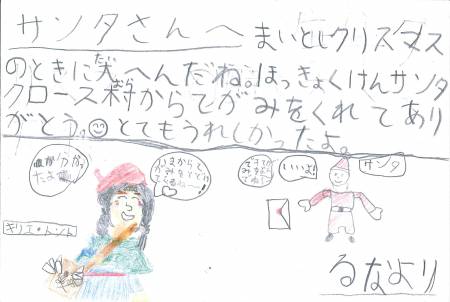 サンタさんへ まいとしクリスマス
のときに大へんだね。ほっきょくけんサンタ
クロース村からてがみをくれてあり
がとう。とてもうれしかったよ。
いまからて
がみをとどけ
いいよ!
サンタ
キリエ・トント
るなより